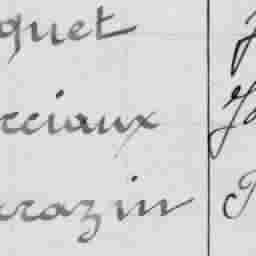 quet
rciaux
rrazin